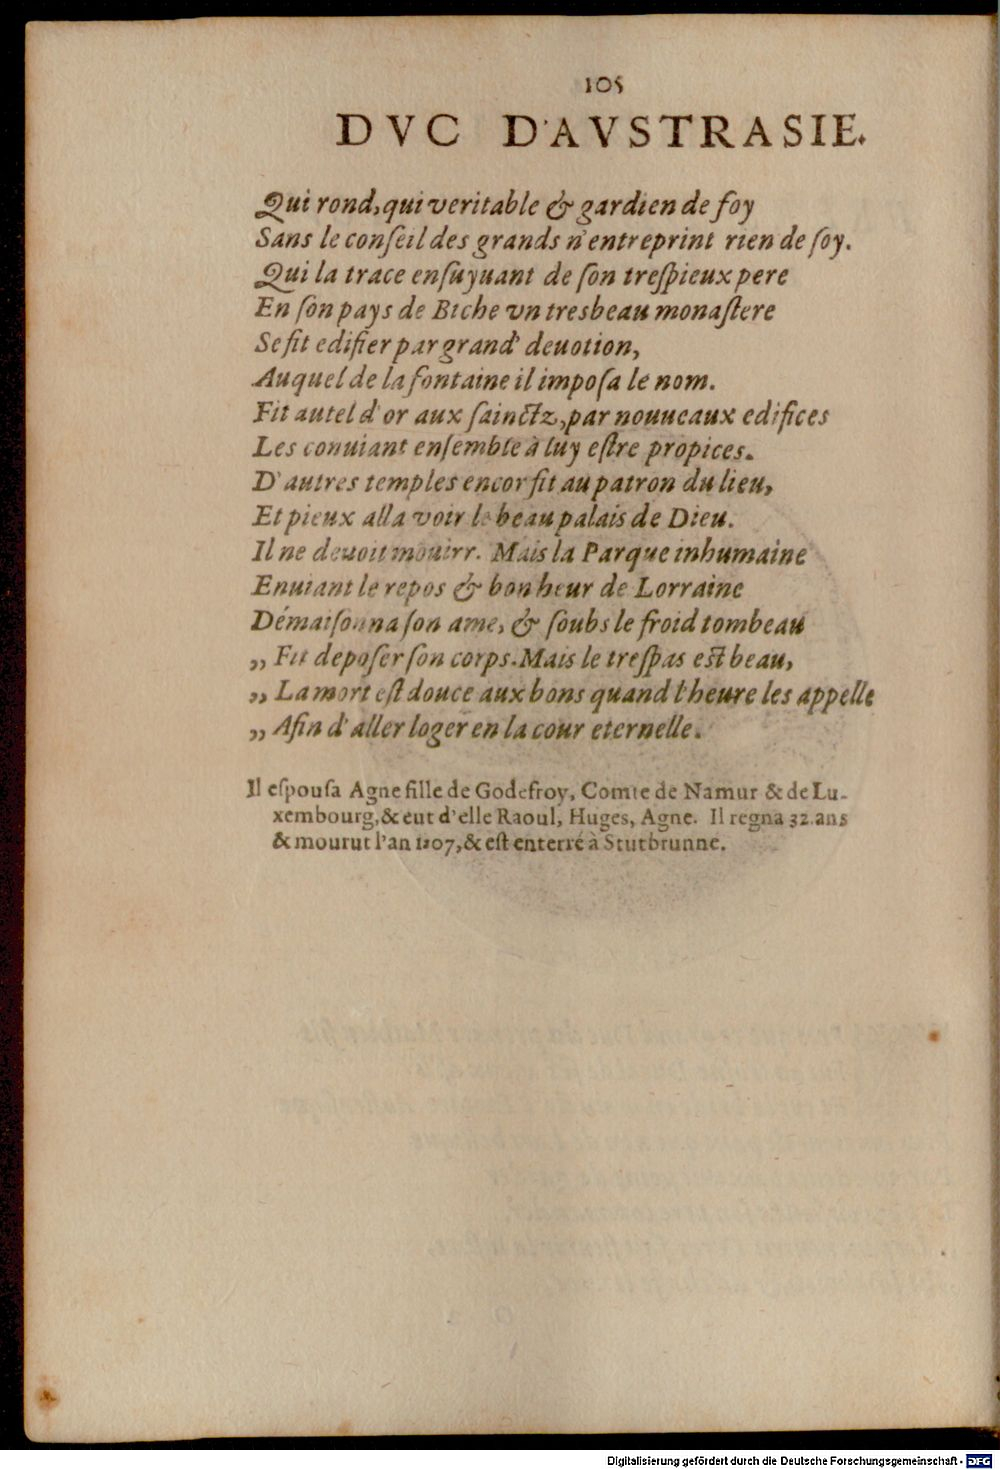 105
DVC D'AVSTRASIE.
Qui rond, qui veritable & gardien de foy
Sans le conſeil des grands n'entreprint rien de ſoy.
Qui la trace enſuyuant de ſon treſpieux pere
En ſon pays de Biche vn tresbeau monaſtere
Se fit edifier par grand' deuotion,
Auquel de la fontaine il impoſa le nom.
Fit autel d'or aux ſainctz, par nouueaux edifices
Les conuiant enſemble à luy eſtre propices.
D'autres temples encor fit au patron du lieu,
Et pieux alla voir le beau palais de Dieu.
Il ne deuoit mouirr. Mais la Parque inhumaine
Enuiant le repos & bon heur de Lorraine
Démaiſonna ſon ame, & ſoubs le froid tombeau
„ Fit depoſer ſon corps. Mais le treſpas eſt beau,
„ La mort eſt douce aux bons quand l'heure les appelle
„ Afin d'aller loger en la cour eternelle.
Il eſpouſa Agne fille de Godefroy, Comte de Namur & de Lu-
xembourg, & eut d'elle Raoul, Huges, Agne. Il regna 32. ans
& mourut l'an 1207, & eſt enterré à Stutbrunne.
Digitalisierung gefördert durch die Deutsche Forschungsgemeinschaft - DFG